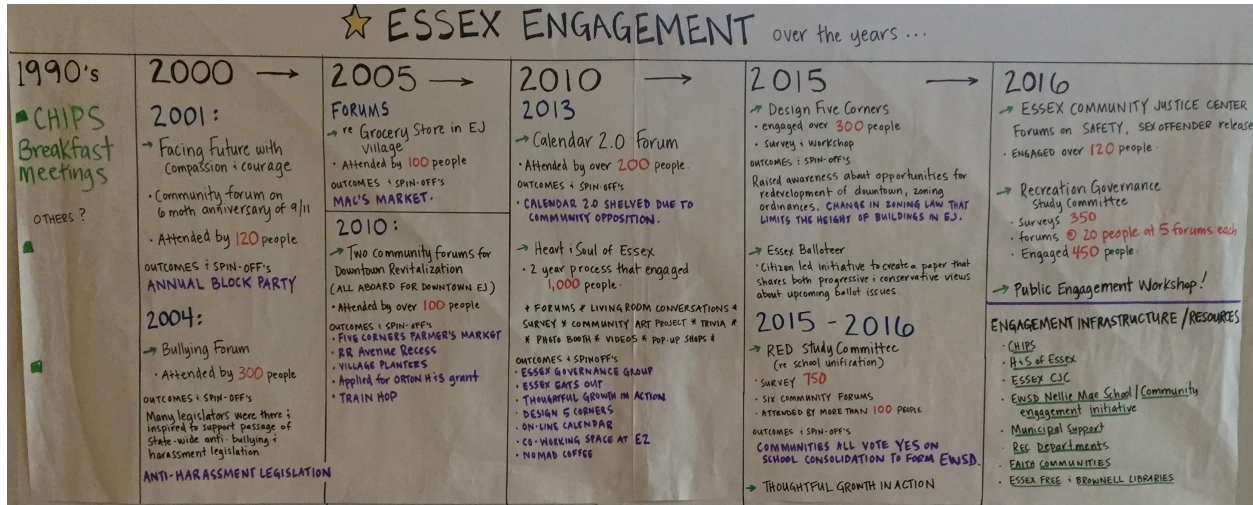 ESSEX ENGAGEMENT over the years ...
1990's
CHIPS
Breakfast
Meetings
OTHERS ?
2000 →
2001:
→ Facing Future with
Compassion & courage
• Community forum on
6 moth anniversary of 9/11
• Attended by 120 people
OUTCOMES & SPIN-OFF'S
ANNUAL BLOCK PARTY
2004:
→ Bullying Forum
• Attended by 300 people
OUTCOMES & SPIN-OFF'S
Many legislators were there &
inspired to support passage of
State-wide anti-bullying &
harassment legislation
ANTI-HARASSMENT LEGISLATION
2005 →
FORUMS
→ re Grocery Store in EJ
Village
• Attended by 100 people
OUTCOMES & SPIN-OFF'S
MAC'S MARKET.
2010:
→ Two community forums for
Downtown Revitalization
(ALL ABOARD FOR DOWNTOWN EJ)
• Attended by over 100 people
OUTCOMES & SPIN-OFF'S
• FIVE CORNERS FARMER'S MARKET
• RR Avenue Recess
• VILLAGE PLANTERS
• Applied for ORTON H&S grant
• TRAIN HOP
2010 →
2013
→ Calendar 2.0 Forum
• Attended by over 200 people.
OUTCOMES & SPIN-OFF'S
• CALENDAR 2.0 SHELVED DUE TO
COMMUNITY OPPOSITION.
→ Heart & Soul of Essex
• 2 year process that engaged
1,000 people
* FORUMS * LIVING ROOM CONVERSATIONS *
SURVEY * COMMUNITY ART PROJECT * TRIVIA *
* PHOTO BOOTH * VIDEOS * POP-UP SHOPS *
OUTCOMES & SPINOFF'S
• ESSEX GOVERNANCE GROUP
• ESSEX EATS OUT
• THOUGHTFUL GROWTH IN ACTION
• DESIGN 5 CORNERS
• ON-LINE CALENDAR
• CO-WORKING SPACE AT E2
• NOMAD COFFEE
2015 →
→ Design Five Corners
• engaged over 300 people
• Survey & workshop
OUTCOMES & SPIN-OFF'S
Raised awareness about opportunities for
redevelopment of downtown, zoning
ordinances. CHANGE IN ZONING LAW THAT
LIMITS THE HEIGHT OF BUILDINGS IN EJ.
→ Essex Balloteer
• Citizen led initiative to create a paper that
shares both progressive & conservative views
about upcoming ballot issues.
2015 - 2016
→ RED Study Committee
(re school unification)
• SURVEY 750
• SIX COMMUNITY FORUMS
• ATTENDED BY MORE THAN 100 PEOPLE
OUTCOMES & SPIN-OFF'S
COMMUNITIES ALL VOTE YES ON
SCHOOL CONSOLIDATION TO FORM EWSD.
→ THOUGHTFUL GROWTH IN ACTION
2016
→ ESSEX COMMUNITY JUSTICE CENTER
Forums on SAFETY, SEX OFFENDER release
• ENGAGED over 120 people.
→ Recreation Governance
Study Committee
• Surveys 350
• forums @ 20 people at 5 forums each
• Engaged 450 people.
→ Public Engagement Workshop!
ENGAGEMENT INFRASTRUCTURE/RESOURCES
• CHIPS
• H+S of Essex
• ESSEX CJC
• EWSD Nellie Mae School/Community
engagement initiative
• Municipal Support
• REC Departments
• FAITH COMMUNITIES
• ESSEX FREE & BROWNELL LIBRARIES